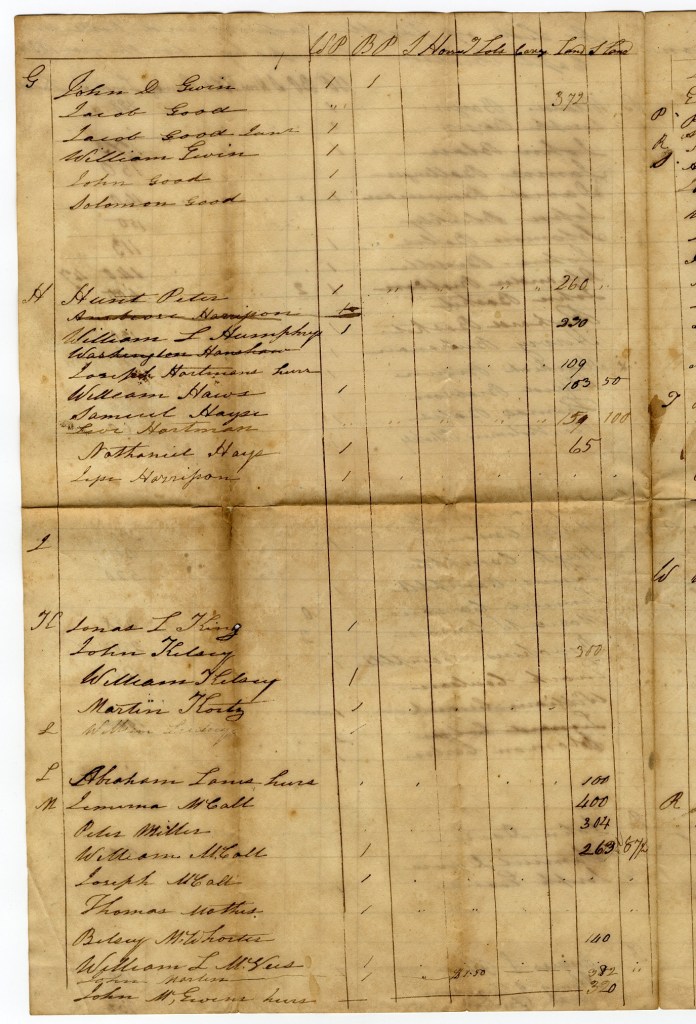 W P B P Lots Land
G John D Gwin 1 1
Jacob Good " 372
Jacob Good Junr 1
William Gwin 1
John Good 1
Solomon Good 1
H Hunt Peter 1 " " " " 260
Harrison
William L Humphrys 1 230
Washington Hanshaw
Joseph Hartmans heirs 109
William Haws 1 103 50
Samuel Hays
Levi Hartman 159 100
Nathaniel Hays 1 65
Harrison 1
I
K Jonas L King 1
John Kelsey 300
William Kelsey 1
Martin Kortz 1
L William
L Abraham Lanes heirs 100
M McCall 400
Peter Miller 304
William McCall 1 263 87½
Joseph McCall 1
Thomas Mathis 1
Betsey McWhorter 140
William L McVees 1 " 31.50 382 "
John Martin 1
John McEwens heirs — 320
P
R
S
T
W
R